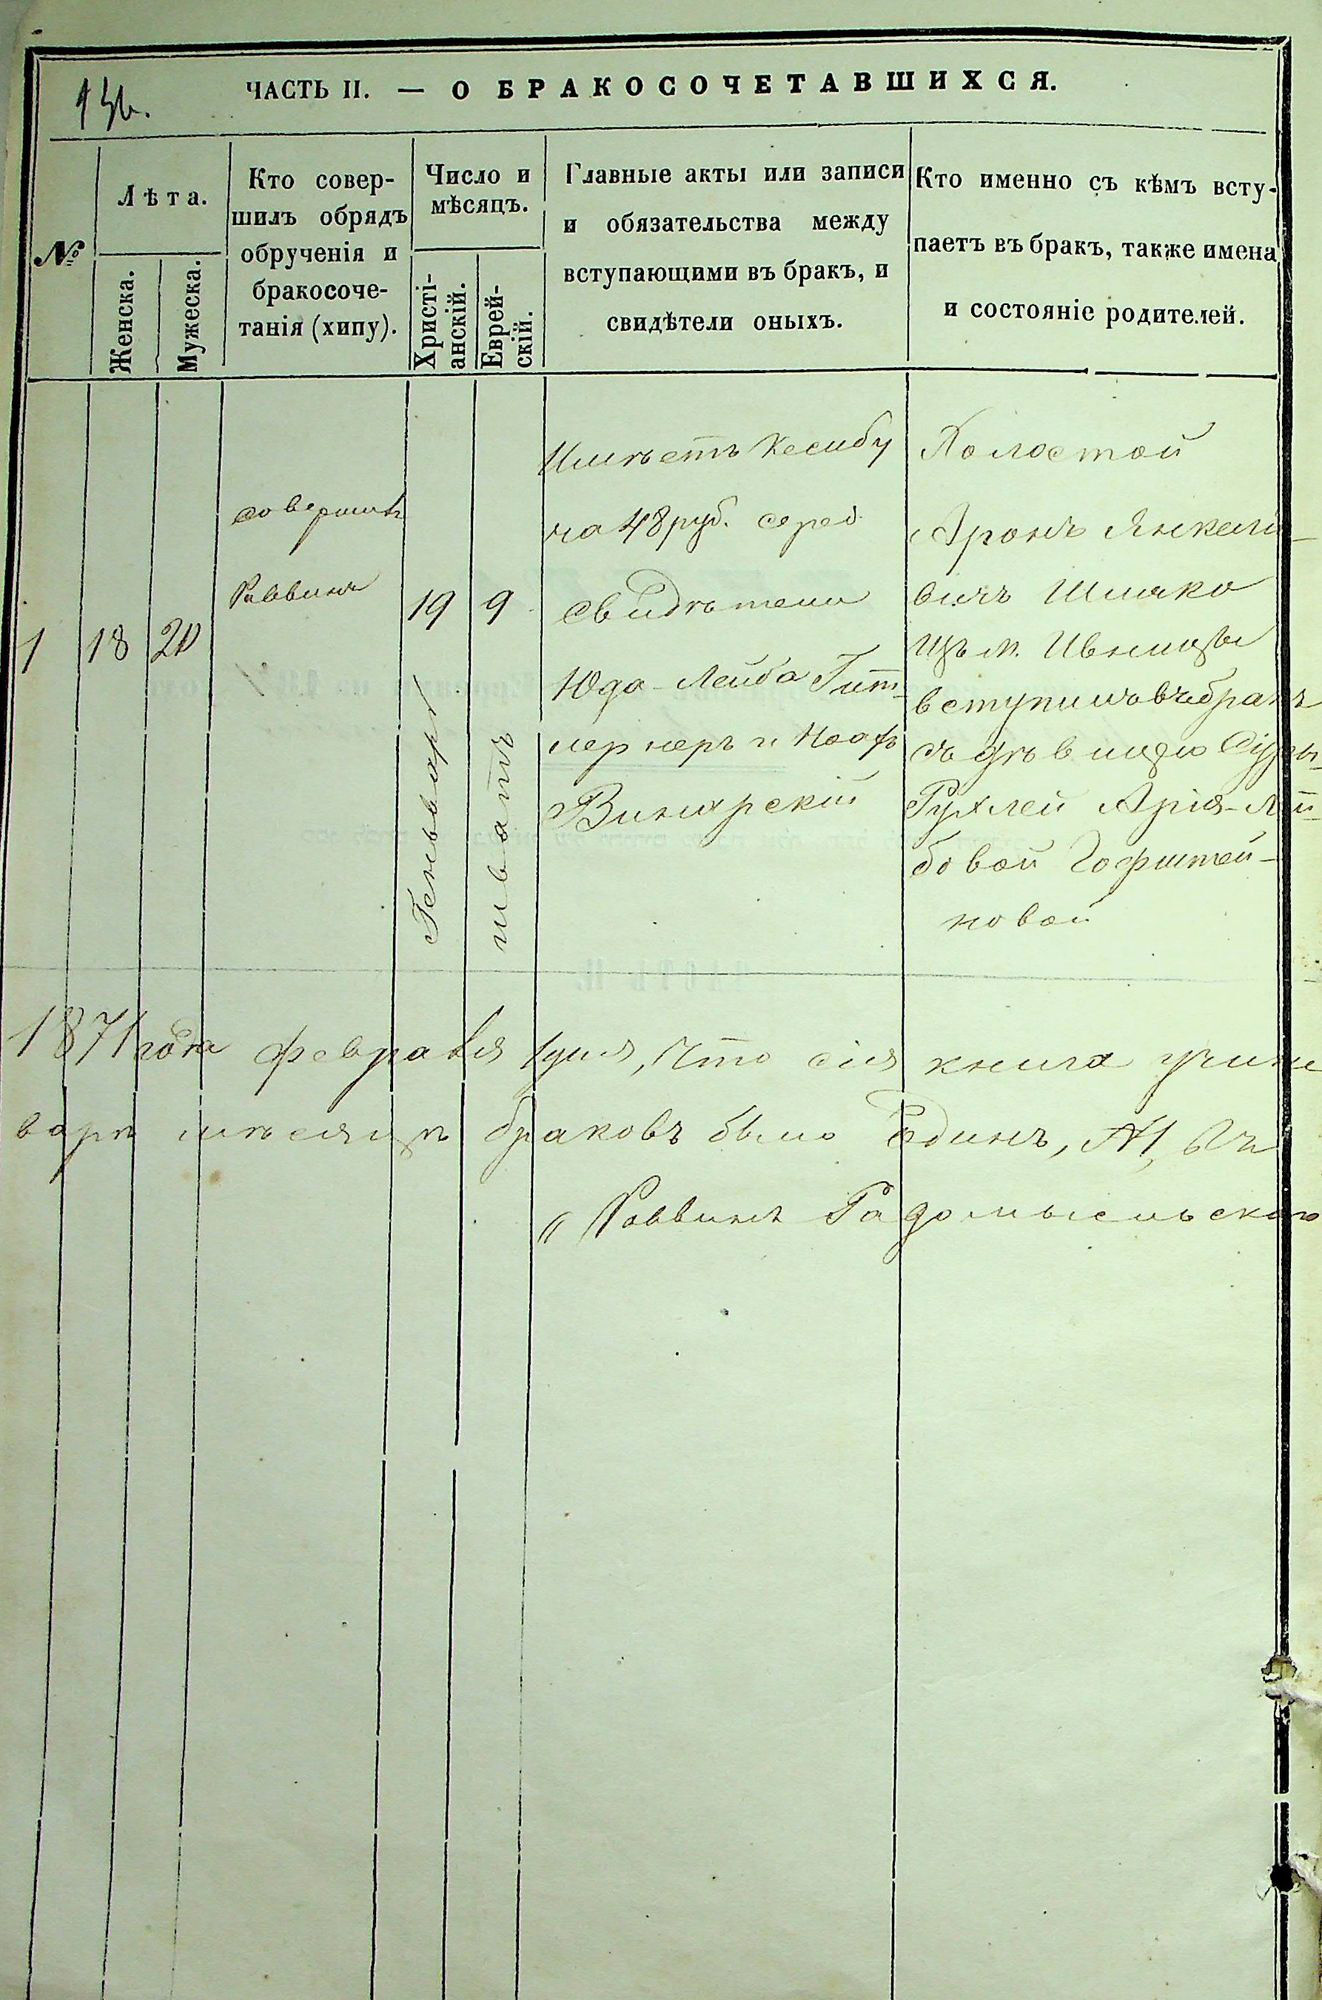 136.
ЧАСТЬ II. — О БРАКОСОЧЕТАВШИХСЯ.
№
Лѣта.
Женска.
Мужеска.
Кто совер-
шилъ обрядъ
обрученія и
бракосоче-
танія (хипу).
Число и
мѣсяцъ.
Христі-
анскій.
Еврей-
скій.
Главные акты или записи
и обязательства между
вступающими въ бракъ, и
свидѣтели оныхъ.
Кто именно съ кѣмъ всту-
паетъ въ бракъ, также имена
и состояніе родителей.
1
18
20
совершилъ
Раввинъ
19
Генваря
9
шватъ
Имѣетъ Кесибу
на 48 руб. сереб
свидѣтели
Юда-Лейба
и
Винярскій
Холостой
Аронъ Янкели-
вичъ
изъ м. Ивницы
вступилъ въ бракъ
съ дѣвицею Суры-
Рухлей Арія-Лей-
бовой Гофштей-
новой
1871 года февраля 1 дня, Что сія книга
варѣ мѣсяцѣ браковъ было Единъ, №1,
„ Раввинъ Радомысльскаго